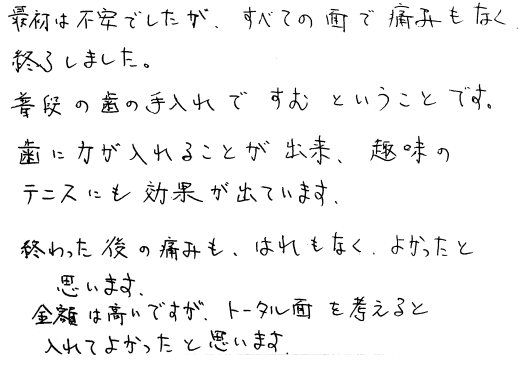 最初は不安でしたが、すべての面で痛みもなく、
終了しました。
普段の歯の手入れですむということです。
歯に力が入れることが出来、趣味の
テニスにも効果が出ています。
終わった後の痛みも、はれもなく、よかったと
思います。
金額は高いですが、トータル面を考えると
入れてよかったと思います。